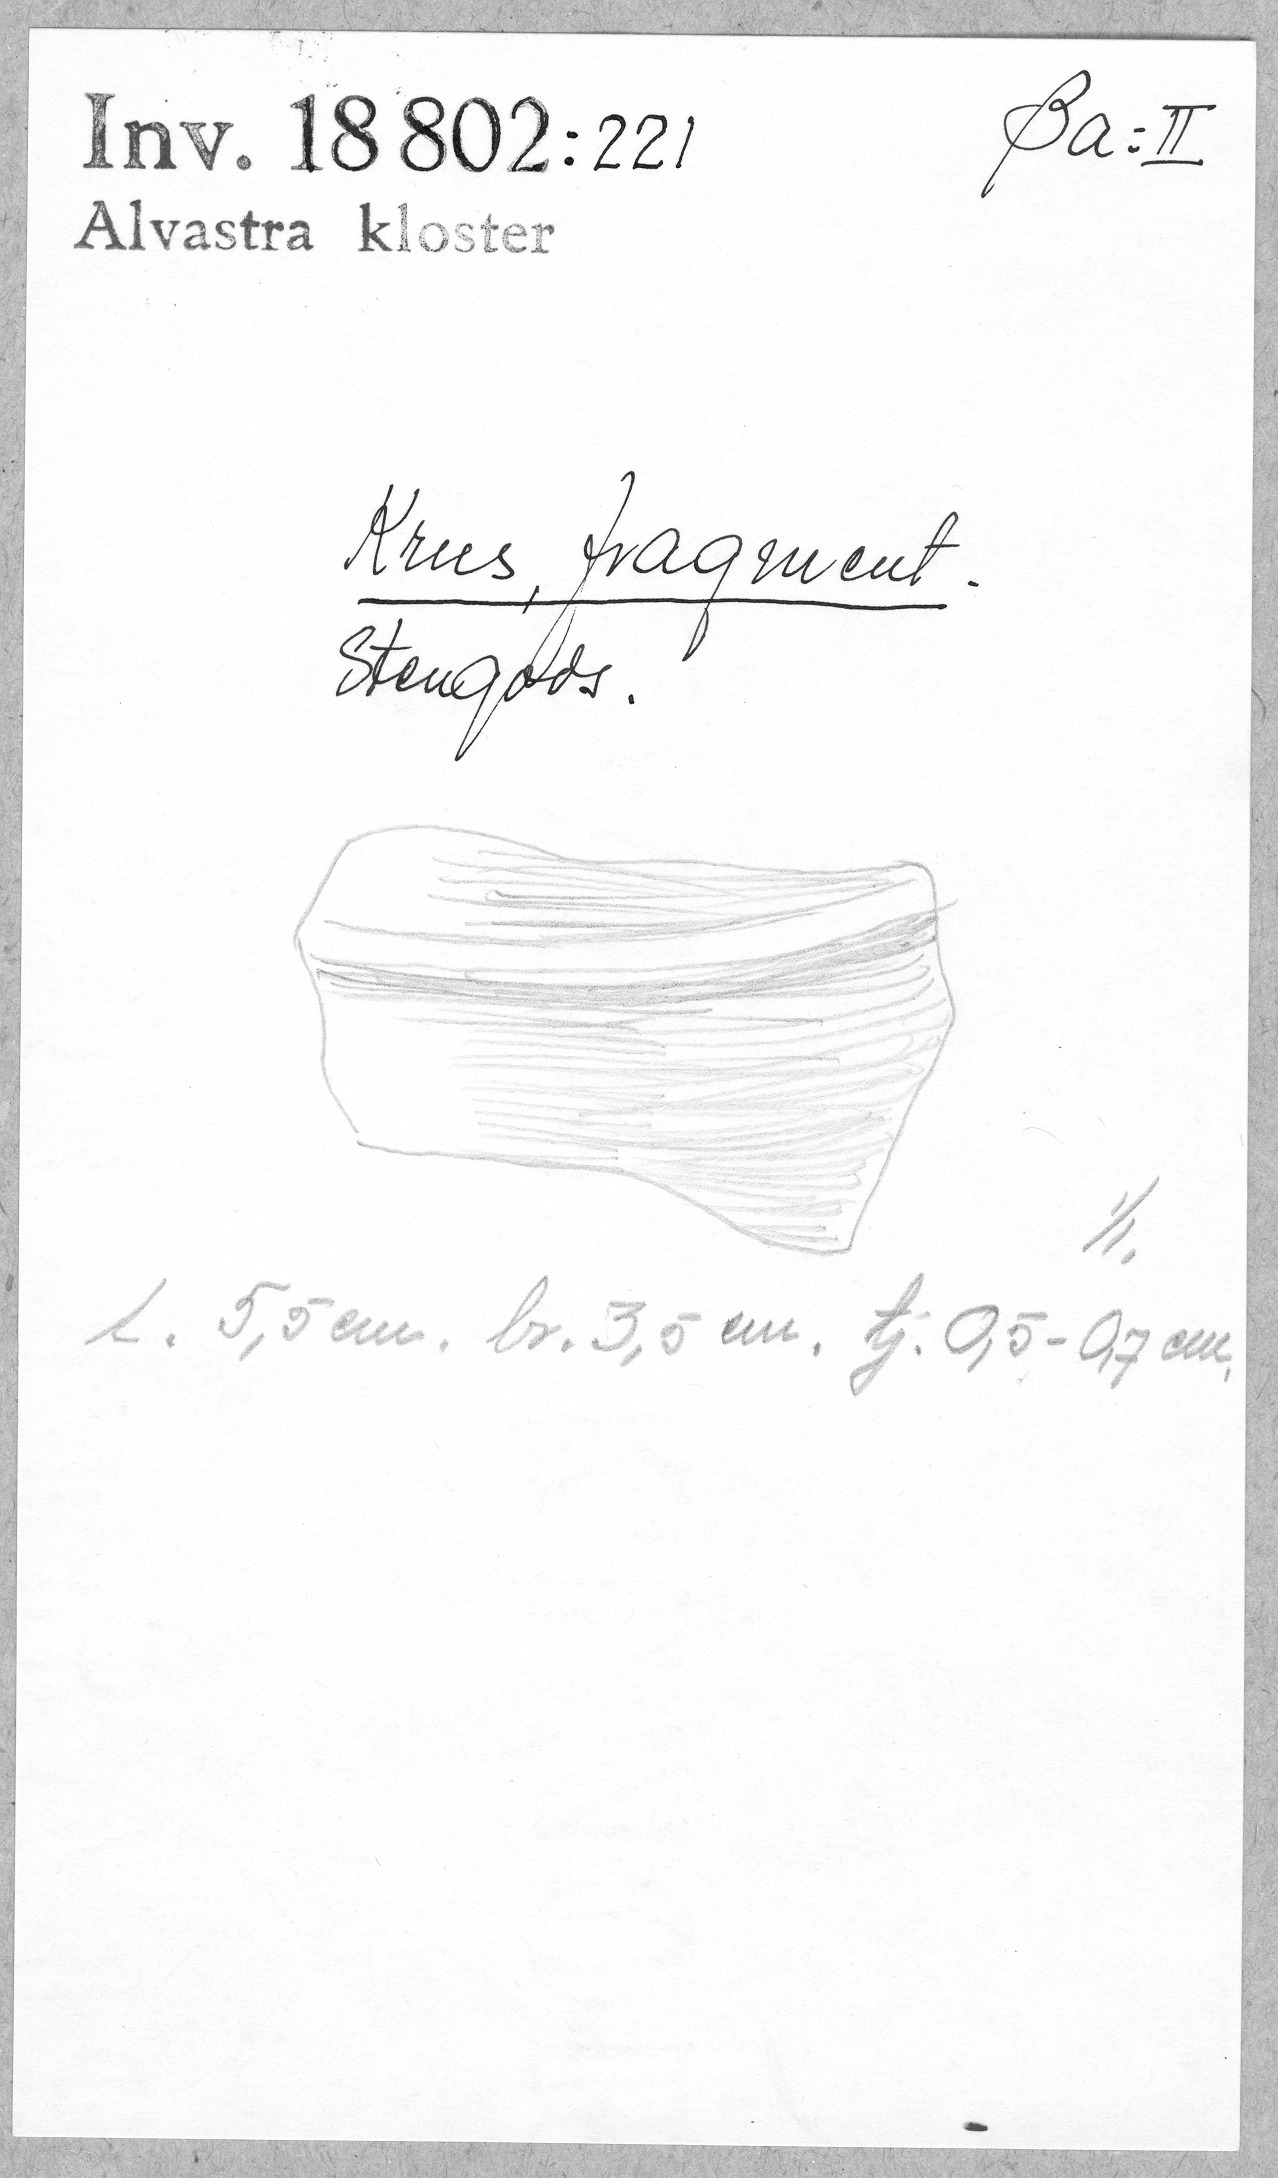 Inv. 18 802:221
Ba:II
Alvastra kloster
Krus, fragment.
Stengods.
1/1.
L. 5,5 cm. br. 3,5 cm. tj. 0,5-0,7 cm.